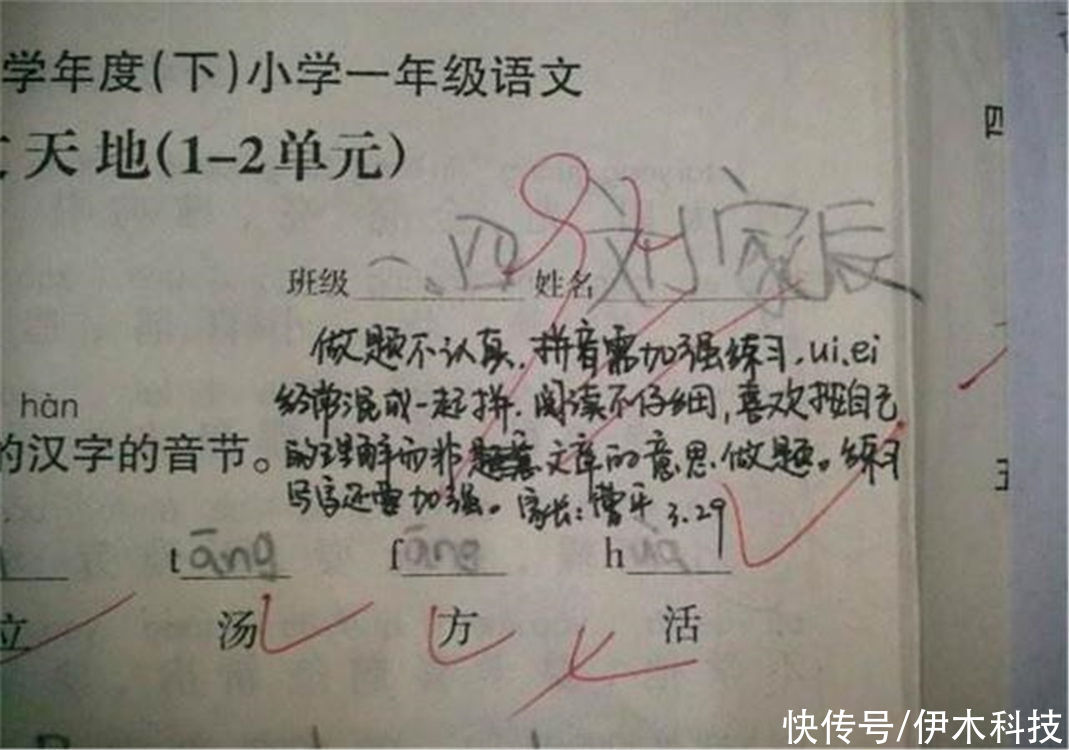 学年度(下)小学一年级语文
天地(1-2单元)
四
班级 一.四 姓名 刘家辰
做题不认真,拼音需加强练习,ui、ei
经常混成一起拼,阅读不仔细,喜欢按自己
的理解而非文章的意思做题。练习
写字还需加强。家长:曹平 3.29
hàn
的汉字的音节。
tāng fāng h
立 汤 方 活
快传号/伊木科技